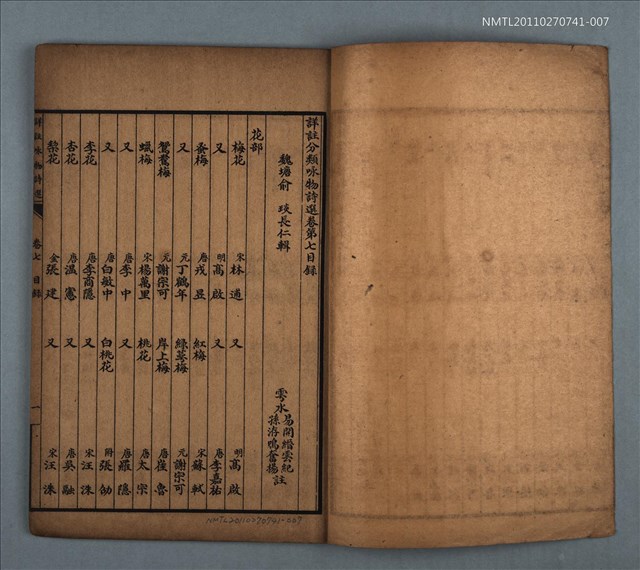 NMTL20110270741-007
詳註分類咏物詩選卷第七目錄
魏塘俞 琰長仁輯
雩水 易開縉雲紀 孫洊鳴奮揚 註
花部
梅花 宋 林逋 又 明 高啟
又 明 高啟 又 唐 李嘉祐
蚤梅 唐 戎昱 紅梅 宋 蘇軾
又 元 丁鶴年 綠萼梅 元 謝宗可
鴛鴦梅 元 謝宗可 岸上梅 唐 崔魯
蠟梅 宋 楊萬里 桃花 唐 太宗
又 唐 李中 又 唐 羅隱
又 唐 白敏中 白桃花 附 張劭
李花 唐 李商隱 又 宋 汪洙
杏花 唐 溫憲 又 唐 吳融
梨花 金 張建 又 宋 汪洙
詳註咏物詩選 卷七 目錄 一
NMTL20110270741-007